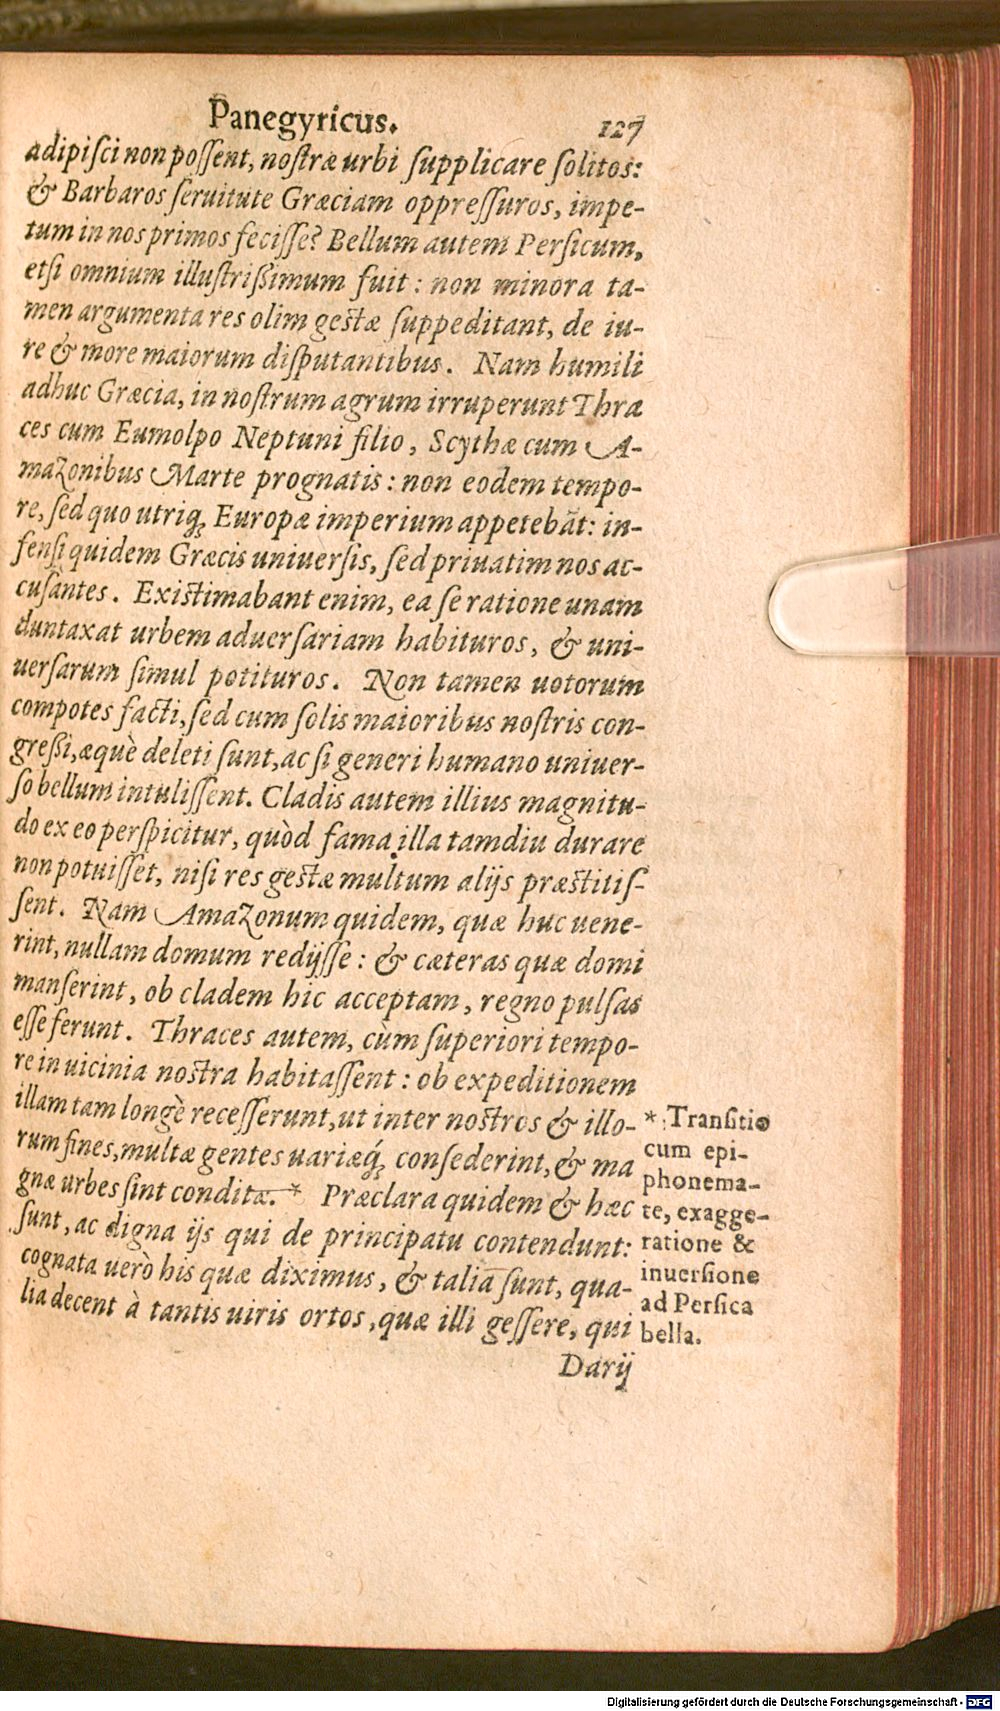 Panegyricus. 127
adipiſci non poſſent, noſtræ urbi ſupplicare ſolitos:
& Barbaros ſeruitute Græciam oppreſſuros, impe-
tum in nos primos feciſſe? Bellum autem Perſicum,
etſi omnium illuſtrißimum fuit: non minora ta-
men argumenta res olim geſtæ ſuppeditant, de iu-
re & more maiorum diſputantibus. Nam humili
adhuc Græcia, in noſtrum agrum irruperunt Thra
ces cum Eumolpo Neptuni filio, Scythæ cum A-
mazonibus Marte prognatis: non eodem tempo-
re, ſed quo utriq̃; Europæ imperium appetebãt: in-
fenſi quidem Græcis uniuerſis, ſed priuatim nos ac-
cuſantes. Exiſtimabant enim, ea ſe ratione unam
duntaxat urbem aduerſariam habituros, & uni-
uerſarum ſimul potituros. Non tamen uotorum
compotes facti, ſed cum ſolis maioribus noſtris con-
greßi, æquè deleti ſunt, ac ſi generi humano uniuer-
ſo bellum intuliſſent. Cladis autem illius magnitu-
do ex eo perſpicitur, quòd fama illa tamdiu durare
non potuiſſet, niſi res geſtæ multum alijs præſtitiſ-
ſent. Nam Amazonum quidem, quæ huc uene-
rint, nullam domum redijſſe: & cæteras quæ domi
manſerint, ob cladem hic acceptam, regno pulſas
eſſe ferunt. Thraces autem, cùm ſuperiori tempo-
re in uicinia noſtra habitaſſent: ob expeditionem
illam tam longè receſſerunt, ut inter noſtros & illo-
rum fines, multæ gentes uariæq́; conſederint, & ma
gnæ urbes ſint conditæ. * Præclara quidem & hæc
ſunt, ac digna ijs qui de principatu contendunt:
cognata uerò his quæ diximus, & talia ſunt, qua-
lia decent à tantis uiris ortos, quæ illi geſſere, qui
Darij
* Tranſitio
cum epi-
phonema-
te, exagge-
ratione &
inuerſione
ad Perſica
bella.
Digitalisierung gefördert durch die Deutsche Forschungsgemeinschaft - DFG